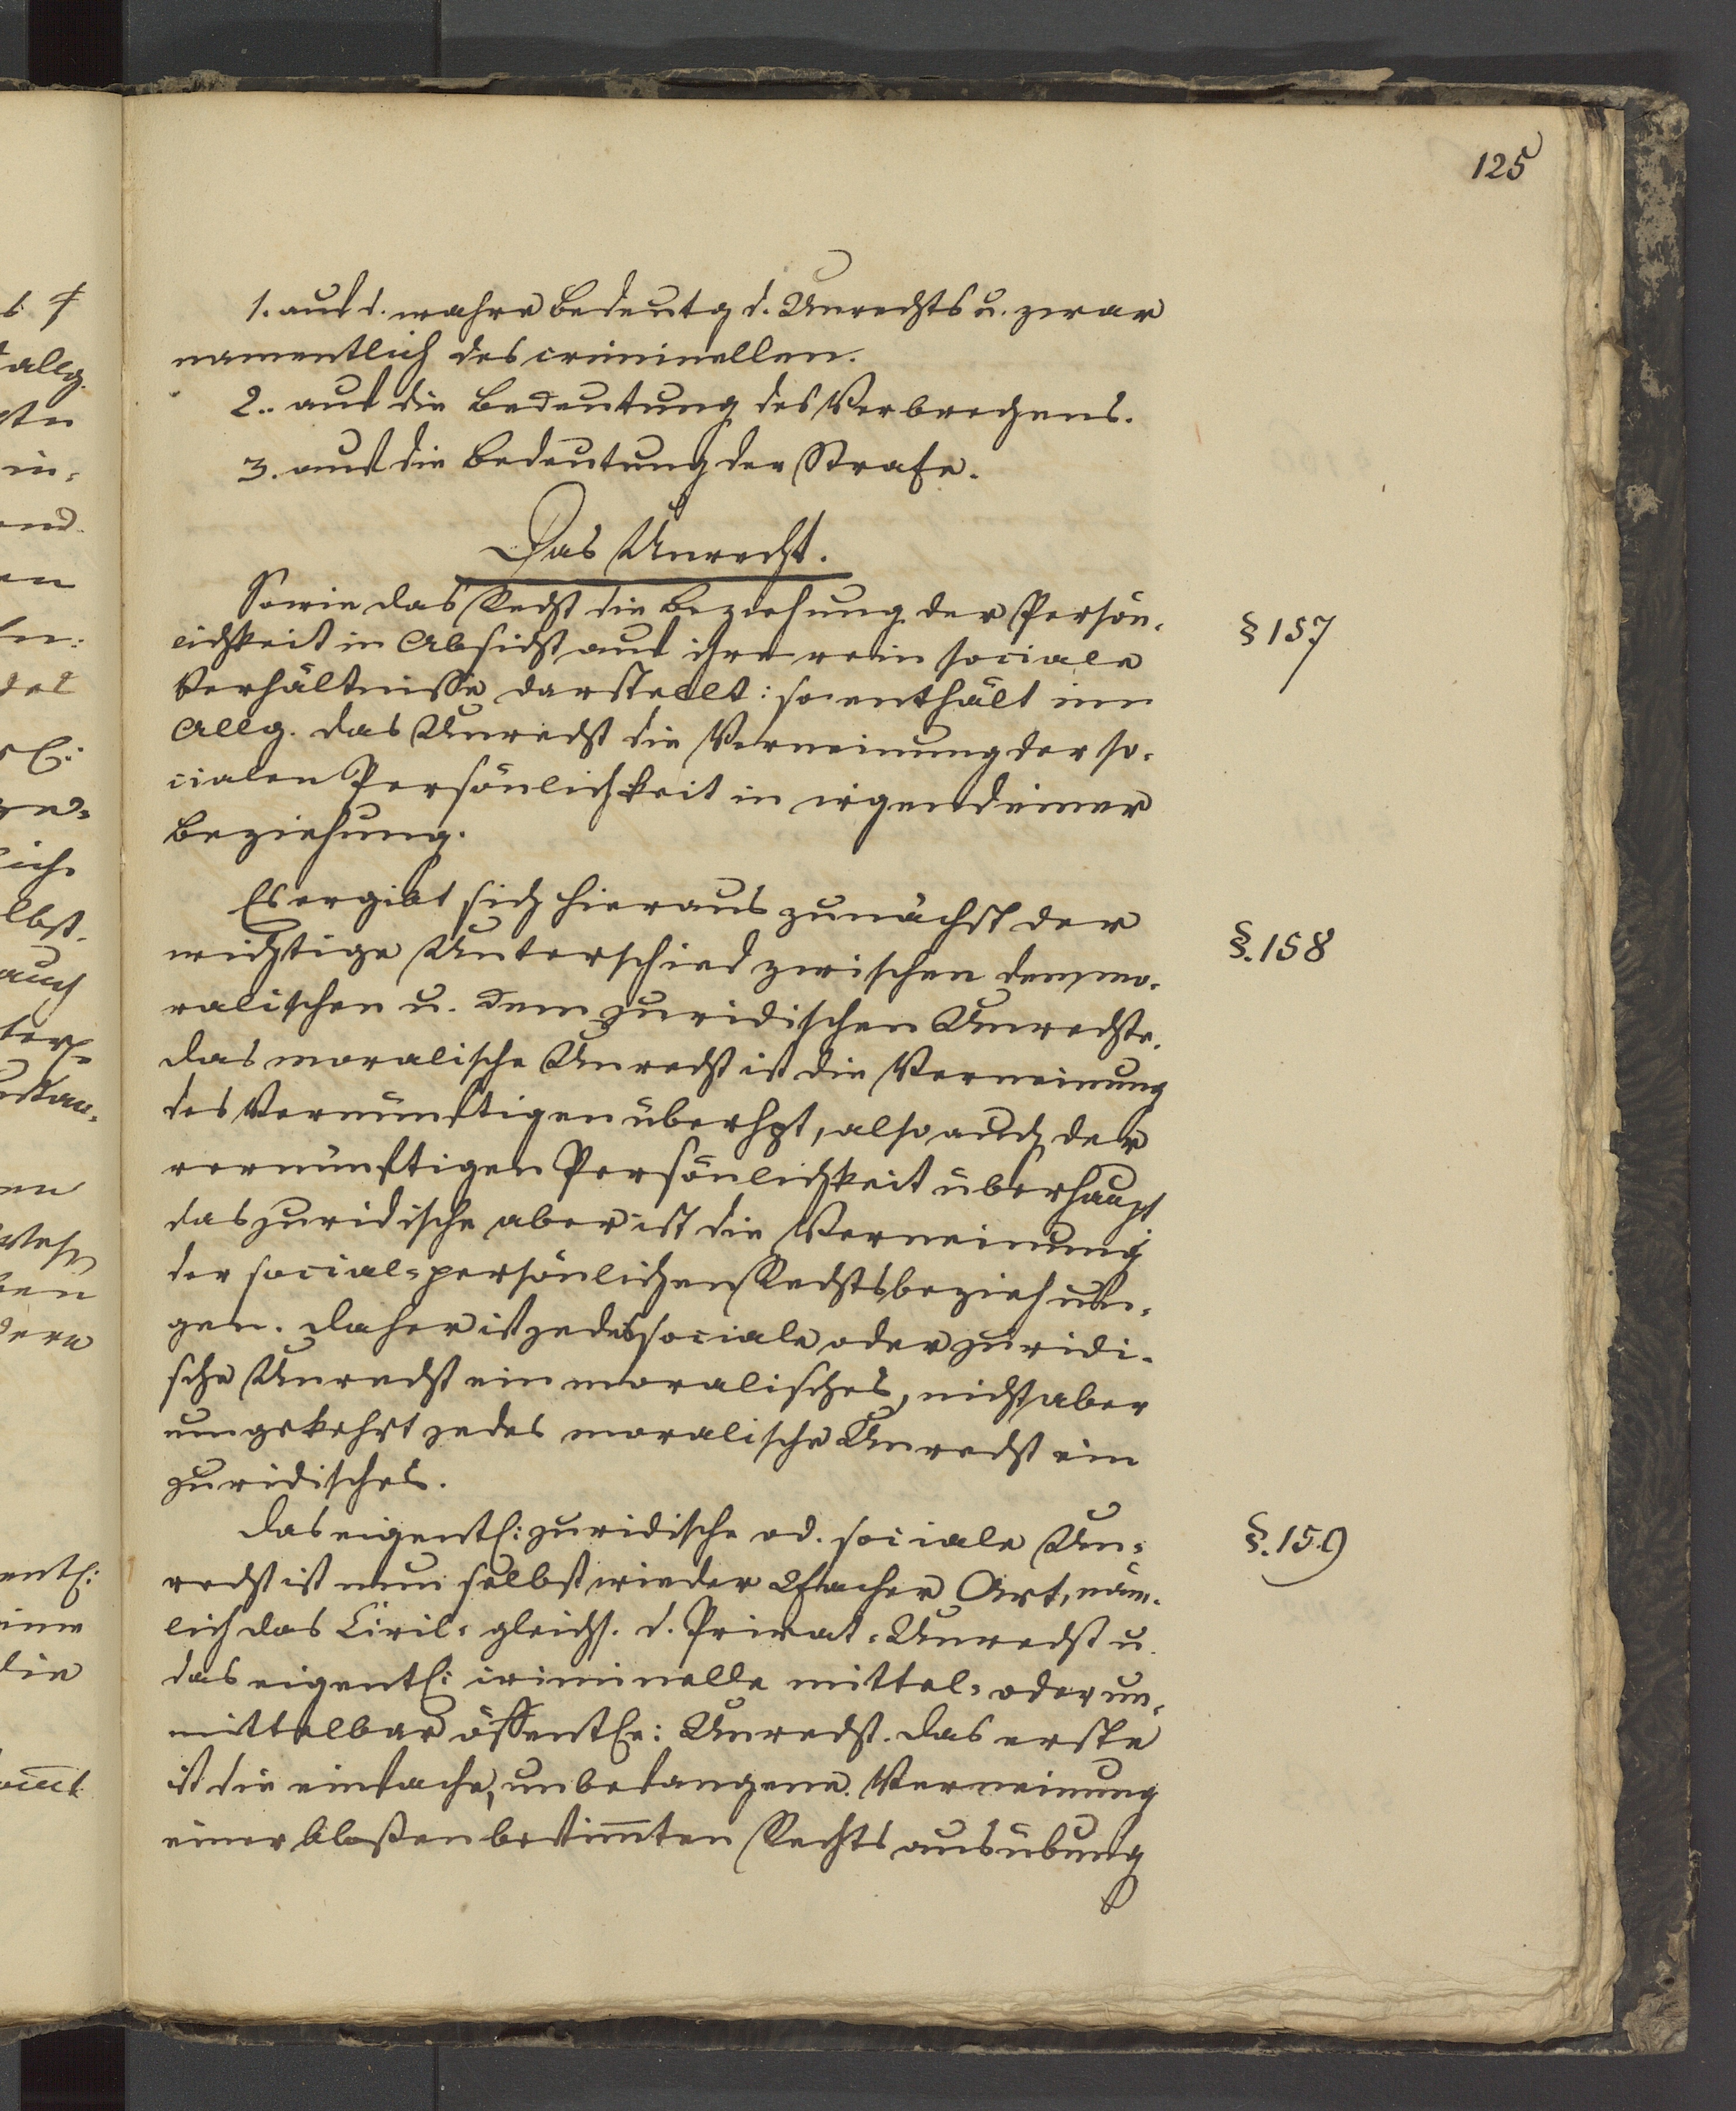 125
1. auf d. wahre Bedeutg d. Unrechts u. zwar
namentlich des criminellen.
2. auf die Bedeutung des Verbrechens.
3. auf die Bedeutung der Strafe.
Das Unrecht.
§ 157
Sowie das Recht die Beziehung der Persön-
lichkeit in Absicht auf ihre rein sociale
Verhältnisse darstellt: so enthält im
Allg. das Unrecht die Verneinung der so-
cialen Persönlichkeit in irgendeiner
Beziehung.
§. 158
Es ergibt sich hieraus zunächst der
wichtige Unterschied zwischen dem mo-
ralischen u. dem juridischen Unrechte.
das moralische Unrecht ist die Verneinung
des Vernünftigen überhpt, also auch der
vernünftigen Persönlichkeit überhaupt
das juridische aber ist die Verneinung
der social-persönlichen Rechtsbeziehun-
gen. daher ist jedes sociale oder juridi-
sche Unrecht ein moralisches, nicht aber
umgekehrt jedes moralische Unrecht ein
juridisches.
§. 159
das eigentl: juridische od. sociale Un-
recht ist nun selbst wieder 2facher Art, näm-
lich das Civil- gleichs. d. Privat-Unrecht u.
das eigentl: criminelle mittel- oder un-
mittelbar öffentle: Unrecht. das erste
ist die einfache, unbefangene Verneinung
einer bloßen bestimmten Rechtsausübung